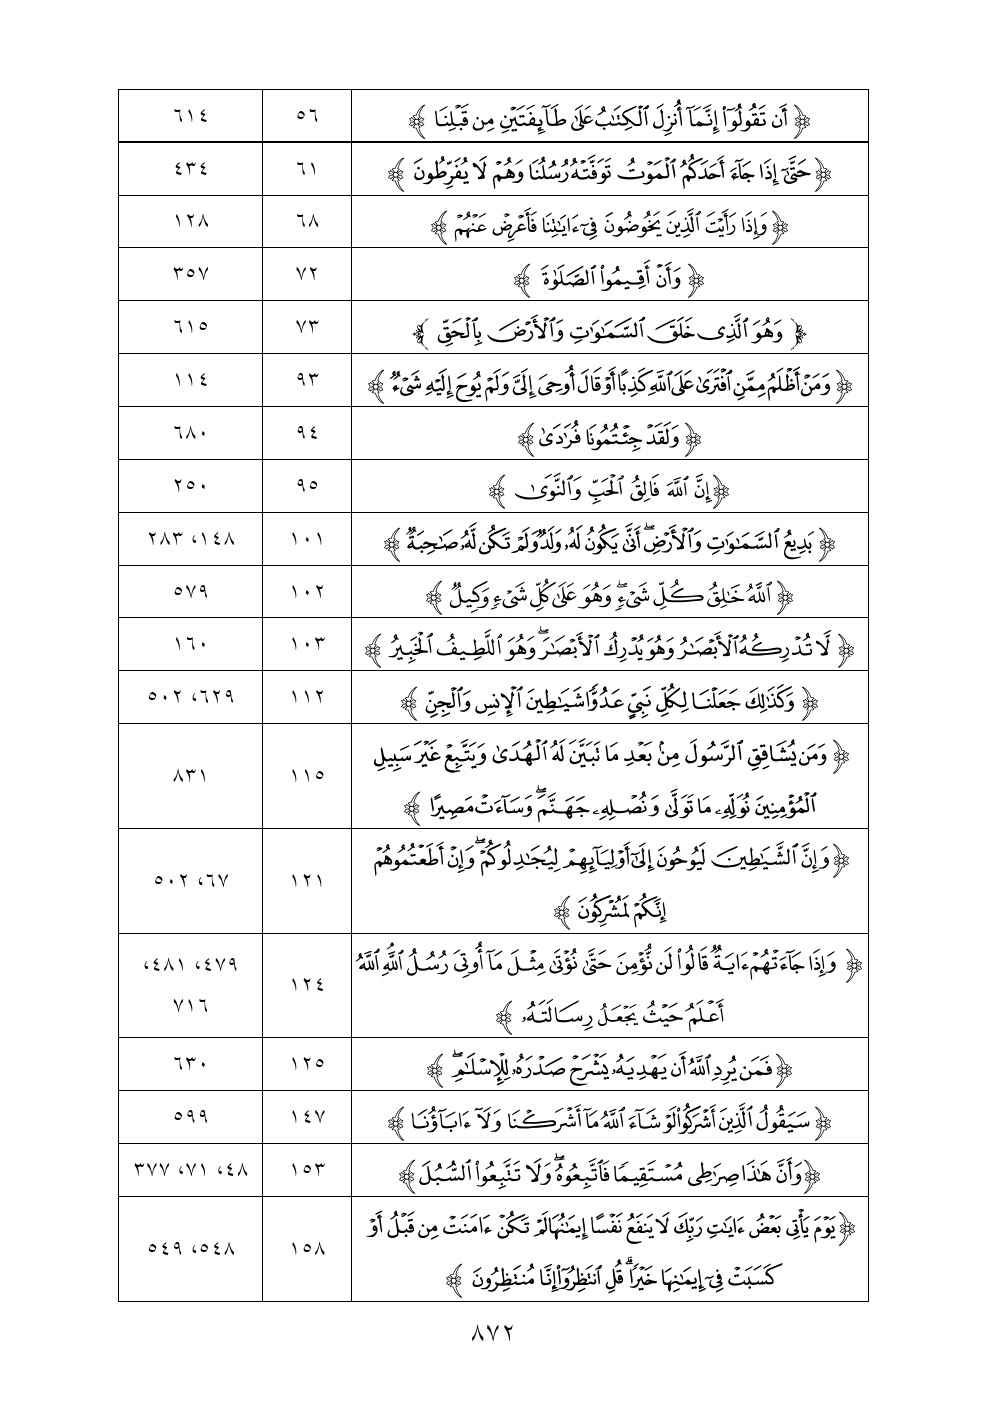 ﴿ أَن تَقُولُوٓا۟ إِنَّمَآ أُنزِلَ ٱلْكِتَٰبُ عَلَىٰ طَآئِفَتَيْنِ مِن قَبْلِنَا ﴾ ٥٦ ٦١٤
﴿ حَتَّىٰٓ إِذَا جَآءَ أَحَدَكُمُ ٱلْمَوْتُ تَوَفَّتْهُ رُسُلُنَا وَهُمْ لَا يُفَرِّطُونَ ﴾ ٦١ ٤٣٤
﴿ وَإِذَا رَأَيْتَ ٱلَّذِينَ يَخُوضُونَ فِىٓ ءَايَٰتِنَا فَأَعْرِضْ عَنْهُمْ ﴾ ٦٨ ١٢٨
﴿ وَأَنْ أَقِيمُوا۟ ٱلصَّلَوٰةَ ﴾ ٧٢ ٣٥٧
﴿ وَهُوَ ٱلَّذِى خَلَقَ ٱلسَّمَٰوَٰتِ وَٱلْأَرْضَ بِٱلْحَقِّ ﴾ ٧٣ ٦١٥
﴿ وَمَنْ أَظْلَمُ مِمَّنِ ٱفْتَرَىٰ عَلَى ٱللَّهِ كَذِبًا أَوْ قَالَ أُوحِىَ إِلَىَّ وَلَمْ يُوحَ إِلَيْهِ شَىْءٌ ﴾ ٩٣ ١١٤
﴿ وَلَقَدْ جِئْتُمُونَا فُرَٰدَىٰ ﴾ ٩٤ ٦٨٠
﴿ إِنَّ ٱللَّهَ فَالِقُ ٱلْحَبِّ وَٱلنَّوَىٰ ﴾ ٩٥ ٢٥٠
﴿ بَدِيعُ ٱلسَّمَٰوَٰتِ وَٱلْأَرْضِ ۖ أَنَّىٰ يَكُونُ لَهُۥ وَلَدٌ وَلَمْ تَكُن لَّهُۥ صَٰحِبَةٌ ﴾ ١٠١ ١٤٨، ٢٨٣
﴿ ٱللَّهُ خَٰلِقُ كُلِّ شَىْءٍ ۖ وَهُوَ عَلَىٰ كُلِّ شَىْءٍ وَكِيلٌ ﴾ ١٠٢ ٥٧٩
﴿ لَّا تُدْرِكُهُ ٱلْأَبْصَٰرُ وَهُوَ يُدْرِكُ ٱلْأَبْصَٰرَ ۖ وَهُوَ ٱللَّطِيفُ ٱلْخَبِيرُ ﴾ ١٠٣ ١٦٠
﴿ وَكَذَٰلِكَ جَعَلْنَا لِكُلِّ نَبِىٍّ عَدُوًّا شَيَٰطِينَ ٱلْإِنسِ وَٱلْجِنِّ ﴾ ١١٢ ٦٢٩، ٥٠٢
﴿ وَمَن يُشَاقِقِ ٱلرَّسُولَ مِنۢ بَعْدِ مَا تَبَيَّنَ لَهُ ٱلْهُدَىٰ وَيَتَّبِعْ غَيْرَ سَبِيلِ
ٱلْمُؤْمِنِينَ نُوَلِّهِۦ مَا تَوَلَّىٰ وَنُصْلِهِۦ جَهَنَّمَ ۖ وَسَآءَتْ مَصِيرًا ﴾ ١١٥ ٨٣١
﴿ وَإِنَّ ٱلشَّيَٰطِينَ لَيُوحُونَ إِلَىٰٓ أَوْلِيَآئِهِمْ لِيُجَٰدِلُوكُمْ ۖ وَإِنْ أَطَعْتُمُوهُمْ
إِنَّكُمْ لَمُشْرِكُونَ ﴾ ١٢١ ٦٧، ٥٠٢
﴿ وَإِذَا جَآءَتْهُمْ ءَايَةٌ قَالُوا۟ لَن نُّؤْمِنَ حَتَّىٰ نُؤْتَىٰ مِثْلَ مَآ أُوتِىَ رُسُلُ ٱللَّهِ ۘ ٱللَّهُ
أَعْلَمُ حَيْثُ يَجْعَلُ رِسَالَتَهُۥ ﴾ ١٢٤ ٤٧٩، ٤٨١،
٧١٦
﴿ فَمَن يُرِدِ ٱللَّهُ أَن يَهْدِيَهُۥ يَشْرَحْ صَدْرَهُۥ لِلْإِسْلَٰمِ ۖ ﴾ ١٢٥ ٦٣٠
﴿ سَيَقُولُ ٱلَّذِينَ أَشْرَكُوا۟ لَوْ شَآءَ ٱللَّهُ مَآ أَشْرَكْنَا وَلَآ ءَابَآؤُنَا ﴾ ١٤٧ ٥٩٩
﴿ وَأَنَّ هَٰذَا صِرَٰطِى مُسْتَقِيمًا فَٱتَّبِعُوهُ ۖ وَلَا تَتَّبِعُوا۟ ٱلسُّبُلَ ﴾ ١٥٣ ٤٨، ٧١، ٣٧٧
﴿ يَوْمَ يَأْتِى بَعْضُ ءَايَٰتِ رَبِّكَ لَا يَنفَعُ نَفْسًا إِيمَٰنُهَا لَمْ تَكُنْ ءَامَنَتْ مِن قَبْلُ أَوْ
كَسَبَتْ فِىٓ إِيمَٰنِهَا خَيْرًا ۗ قُلِ ٱنتَظِرُوٓا۟ إِنَّا مُنتَظِرُونَ ﴾ ١٥٨ ٥٤٨، ٥٤٩
٨٧٢